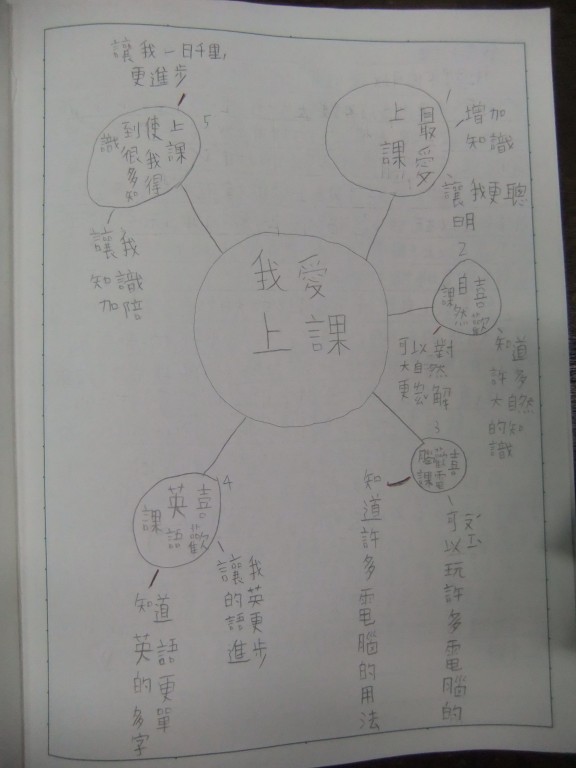 我愛
上課
1
最愛
上課
增加
知識
讓我更聰
明
2
喜歡
自然
課
知道
許多
大自然
的知
識
可以對
大自然
更解
3
喜
歡電
腦課
知道許多電腦的用法
可以玩許多電腦的
4
喜歡
英語
課
讓我
的英
語更
進步
知道
英語
的更
多單
字
5
上課
使我得
到很多知
識
讓我一日千里,
更進步
讓我
知識
加陪